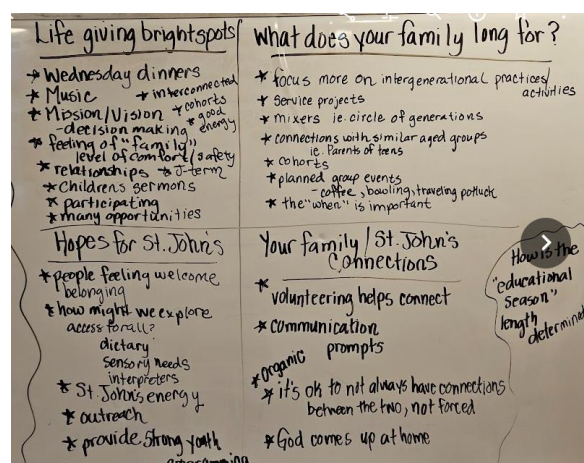 Life giving brightspots
* Wednesday dinners
* Music
* interconnected
* cohorts
* good energy
* Mission/Vision
- decision making
* feeling of "family"
level of comfort/safety
* relationships * J-term
* Childrens sermons
* participating
* many opportunities
What does your family long for?
* focus more on intergenerational practices/
activities
* Service projects
* mixers ie. circle of generations
* connections with similar aged groups
ie. Parents of teens
* cohorts
* planned group events
- coffee, bowling, traveling potluck
* the "when" is important
Hopes for St. John's
* people feeling welcome
belonging
* how might we explore
access for all?
dietary
sensory needs
interpreters
* St. John's energy
* outreach
* provide strong youth
programming
Your family/St. John's
Connections
*
volunteering helps connect
* communication
prompts
* organic
* it's ok to not always have connections
between the two, not forced
* God comes up at home
How is the
"educational
season"
length
determined